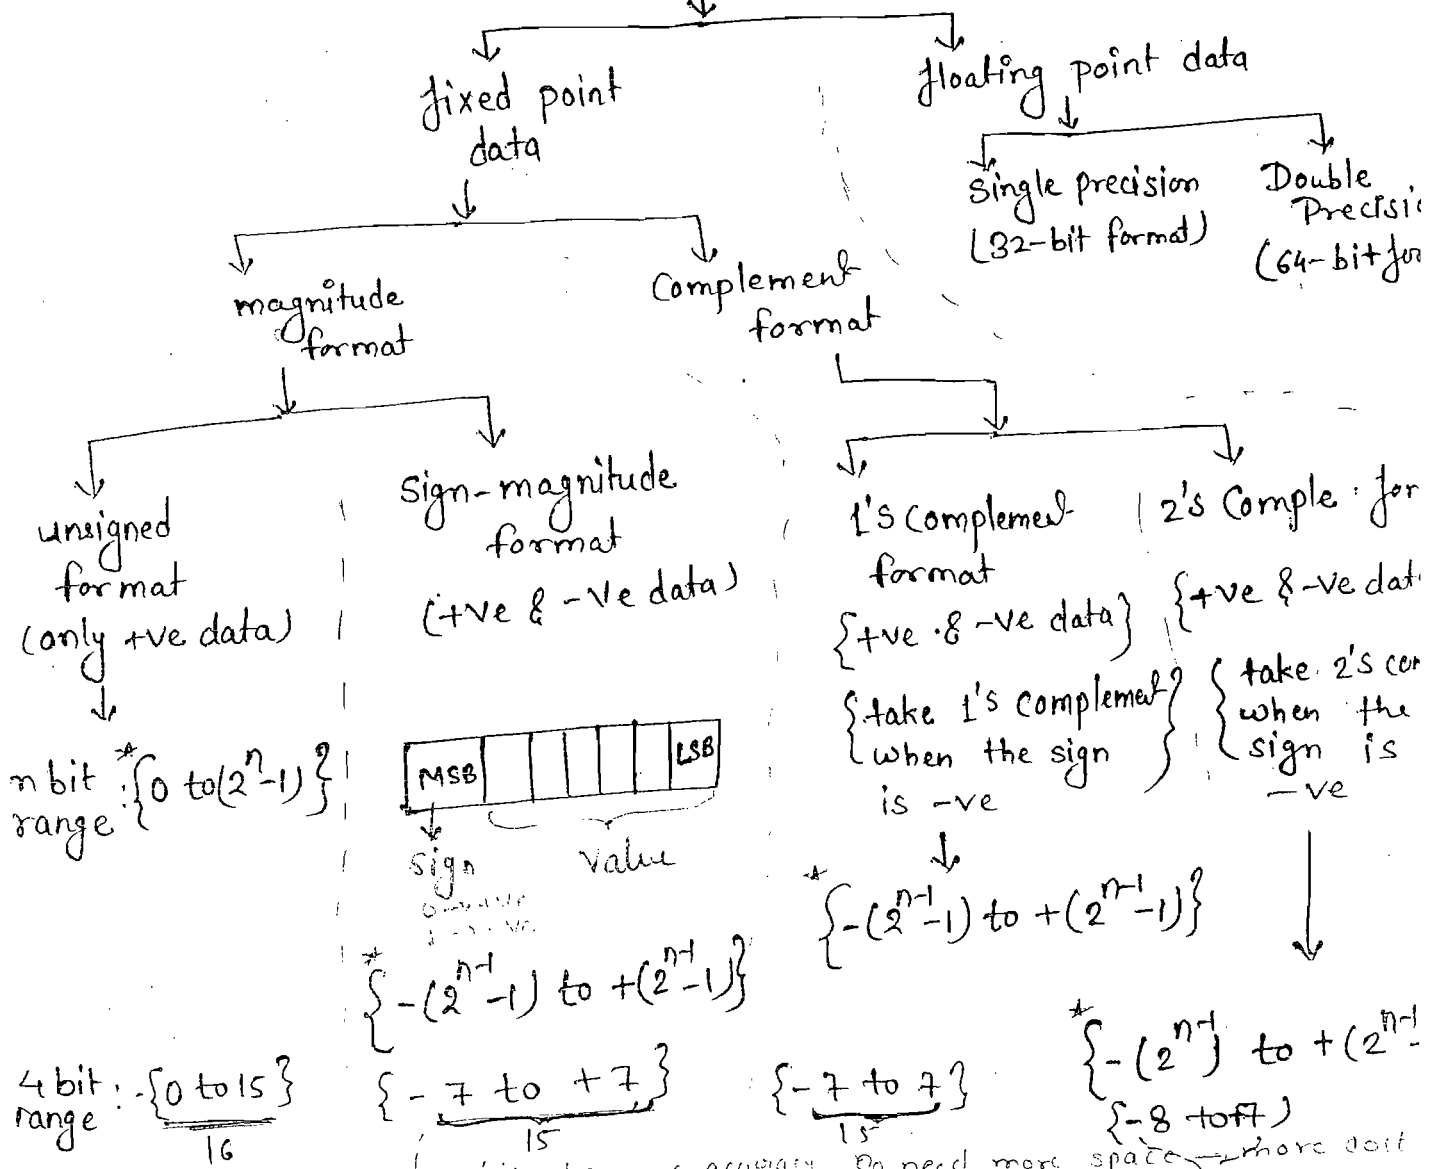 fixed point
data
floating point data
Single precision
(32-bit format)
Double
Precisi
(64-bit for
magnitude
format
Complement
format
unsigned
format
(only +ve data)
n bit range: *{0 to (2^n-1)}
Sign-magnitude
format
(+ve & -ve data)
MSB
LSB
sign
value
*{-(2^{n-1}-1) to +(2^{n-1}-1)}
1's complement
format
{+ve & -ve data}
{take 1's complement
when the sign
is -ve}
*{-(2^{n-1}-1) to +(2^{n-1}-1)}
2's Comple. for
{+ve & -ve dat
{take 2's com
when the
sign is
-ve
*{-(2^{n-1}) to +(2^{n-1}-
4 bit range: {0 to 15}
16
{-7 to +7}
15
{-7 to 7}
15
{-8 to +7)
need more space → more cost